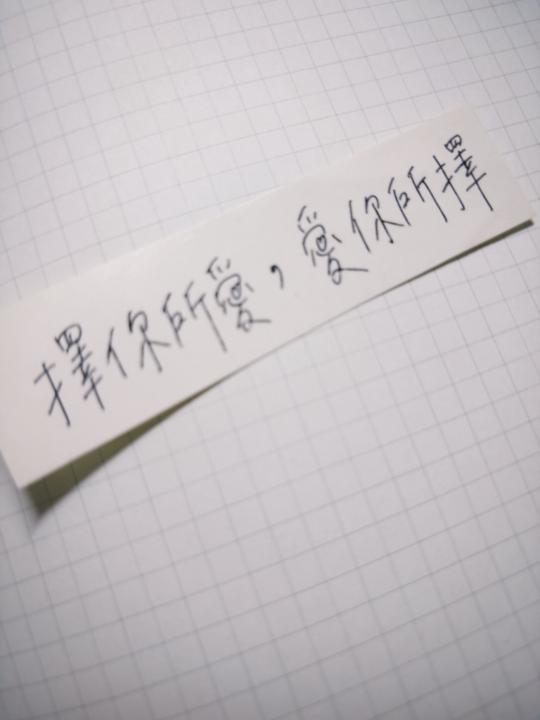 擇你所愛，愛你所擇